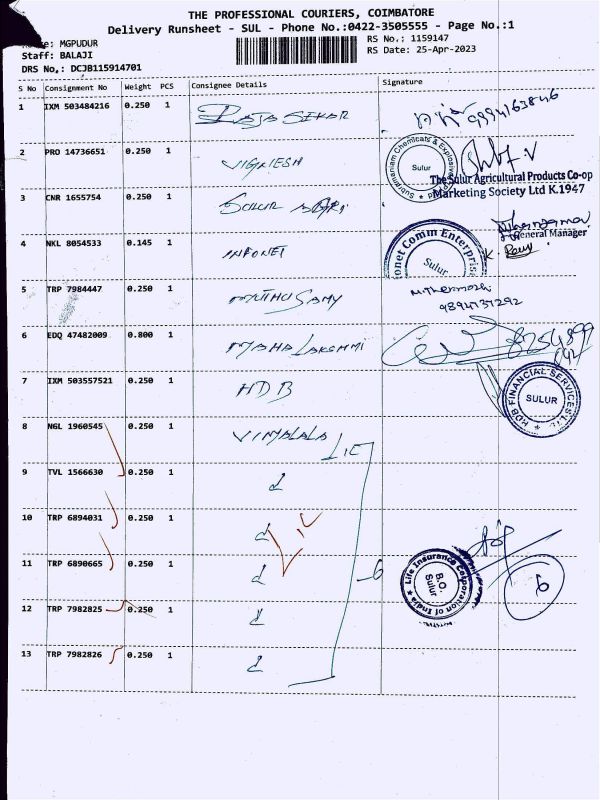 THE PROFESSIONAL COURIERS, COIMBATORE
Delivery Runsheet - SUL - Phone No.:0422-3505555 - Page No.:1
MGPUDUR
RS No.: 1159147
Staff: BALAJI
RS Date: 25-Apr-2023
DRS No.: DCJB115914701
S No Consignment No Weight PCS Consignee Details Signature
1 IXM 503484216 0.250 1 RAJA SEKAR 9994163846
2 PRO 14736651 0.250 1 VIGNESH
Subramaniam Chemicals & Explosives Sulur
The Sulur Agricultural Products Co-op
Marketing Society Ltd K.1947
3 CNR 1655754 0.250 1 SULUR
General Manager
4 NKL 8054533 0.145 1 INFONET
onet Comm Enterpris
Sulur
5 TRP 7984447 0.250 1 MUTHU SAMY
9894737292
6 EDQ 47482009 0.800 1 MAHA LAKSHMI 8254899
7 IXM 503557521 0.250 1 HDB
HDB FINANCIAL SERVICES LTD. SULUR
8 NGL 1960545 0.250 1 LIC
9 TVL 1566630 0.250 1 d
10 TRP 6894031 0.250 1 d
11 TRP 6890665 0.250 1 d 6
Life Insurance Corporation of India B.O. Sulur
6
12 TRP 7982825 0.250 1 d
13 TRP 7982826 0.250 1 d